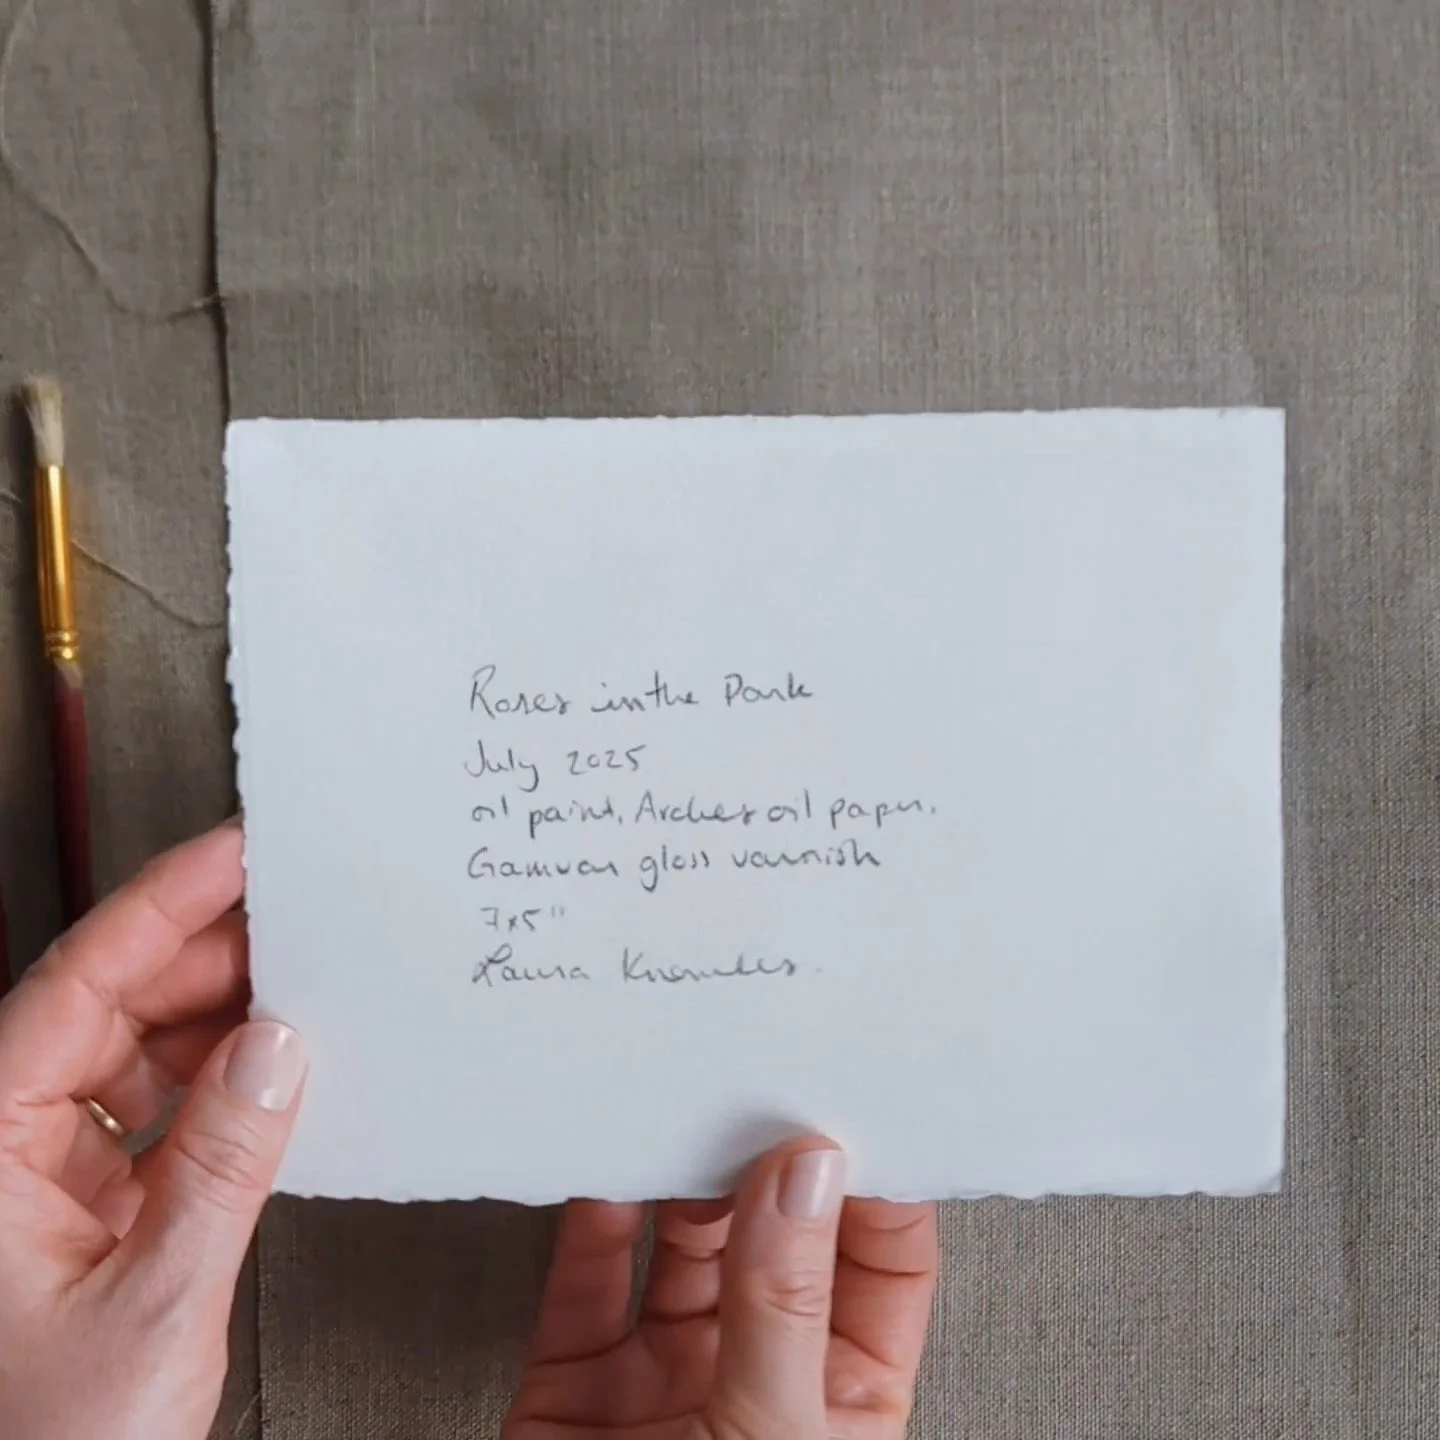 Roses in the Park
July 2025
oil paint, Arches oil paper.
Gamvar gloss varnish
7x5"
Laura Knowles.